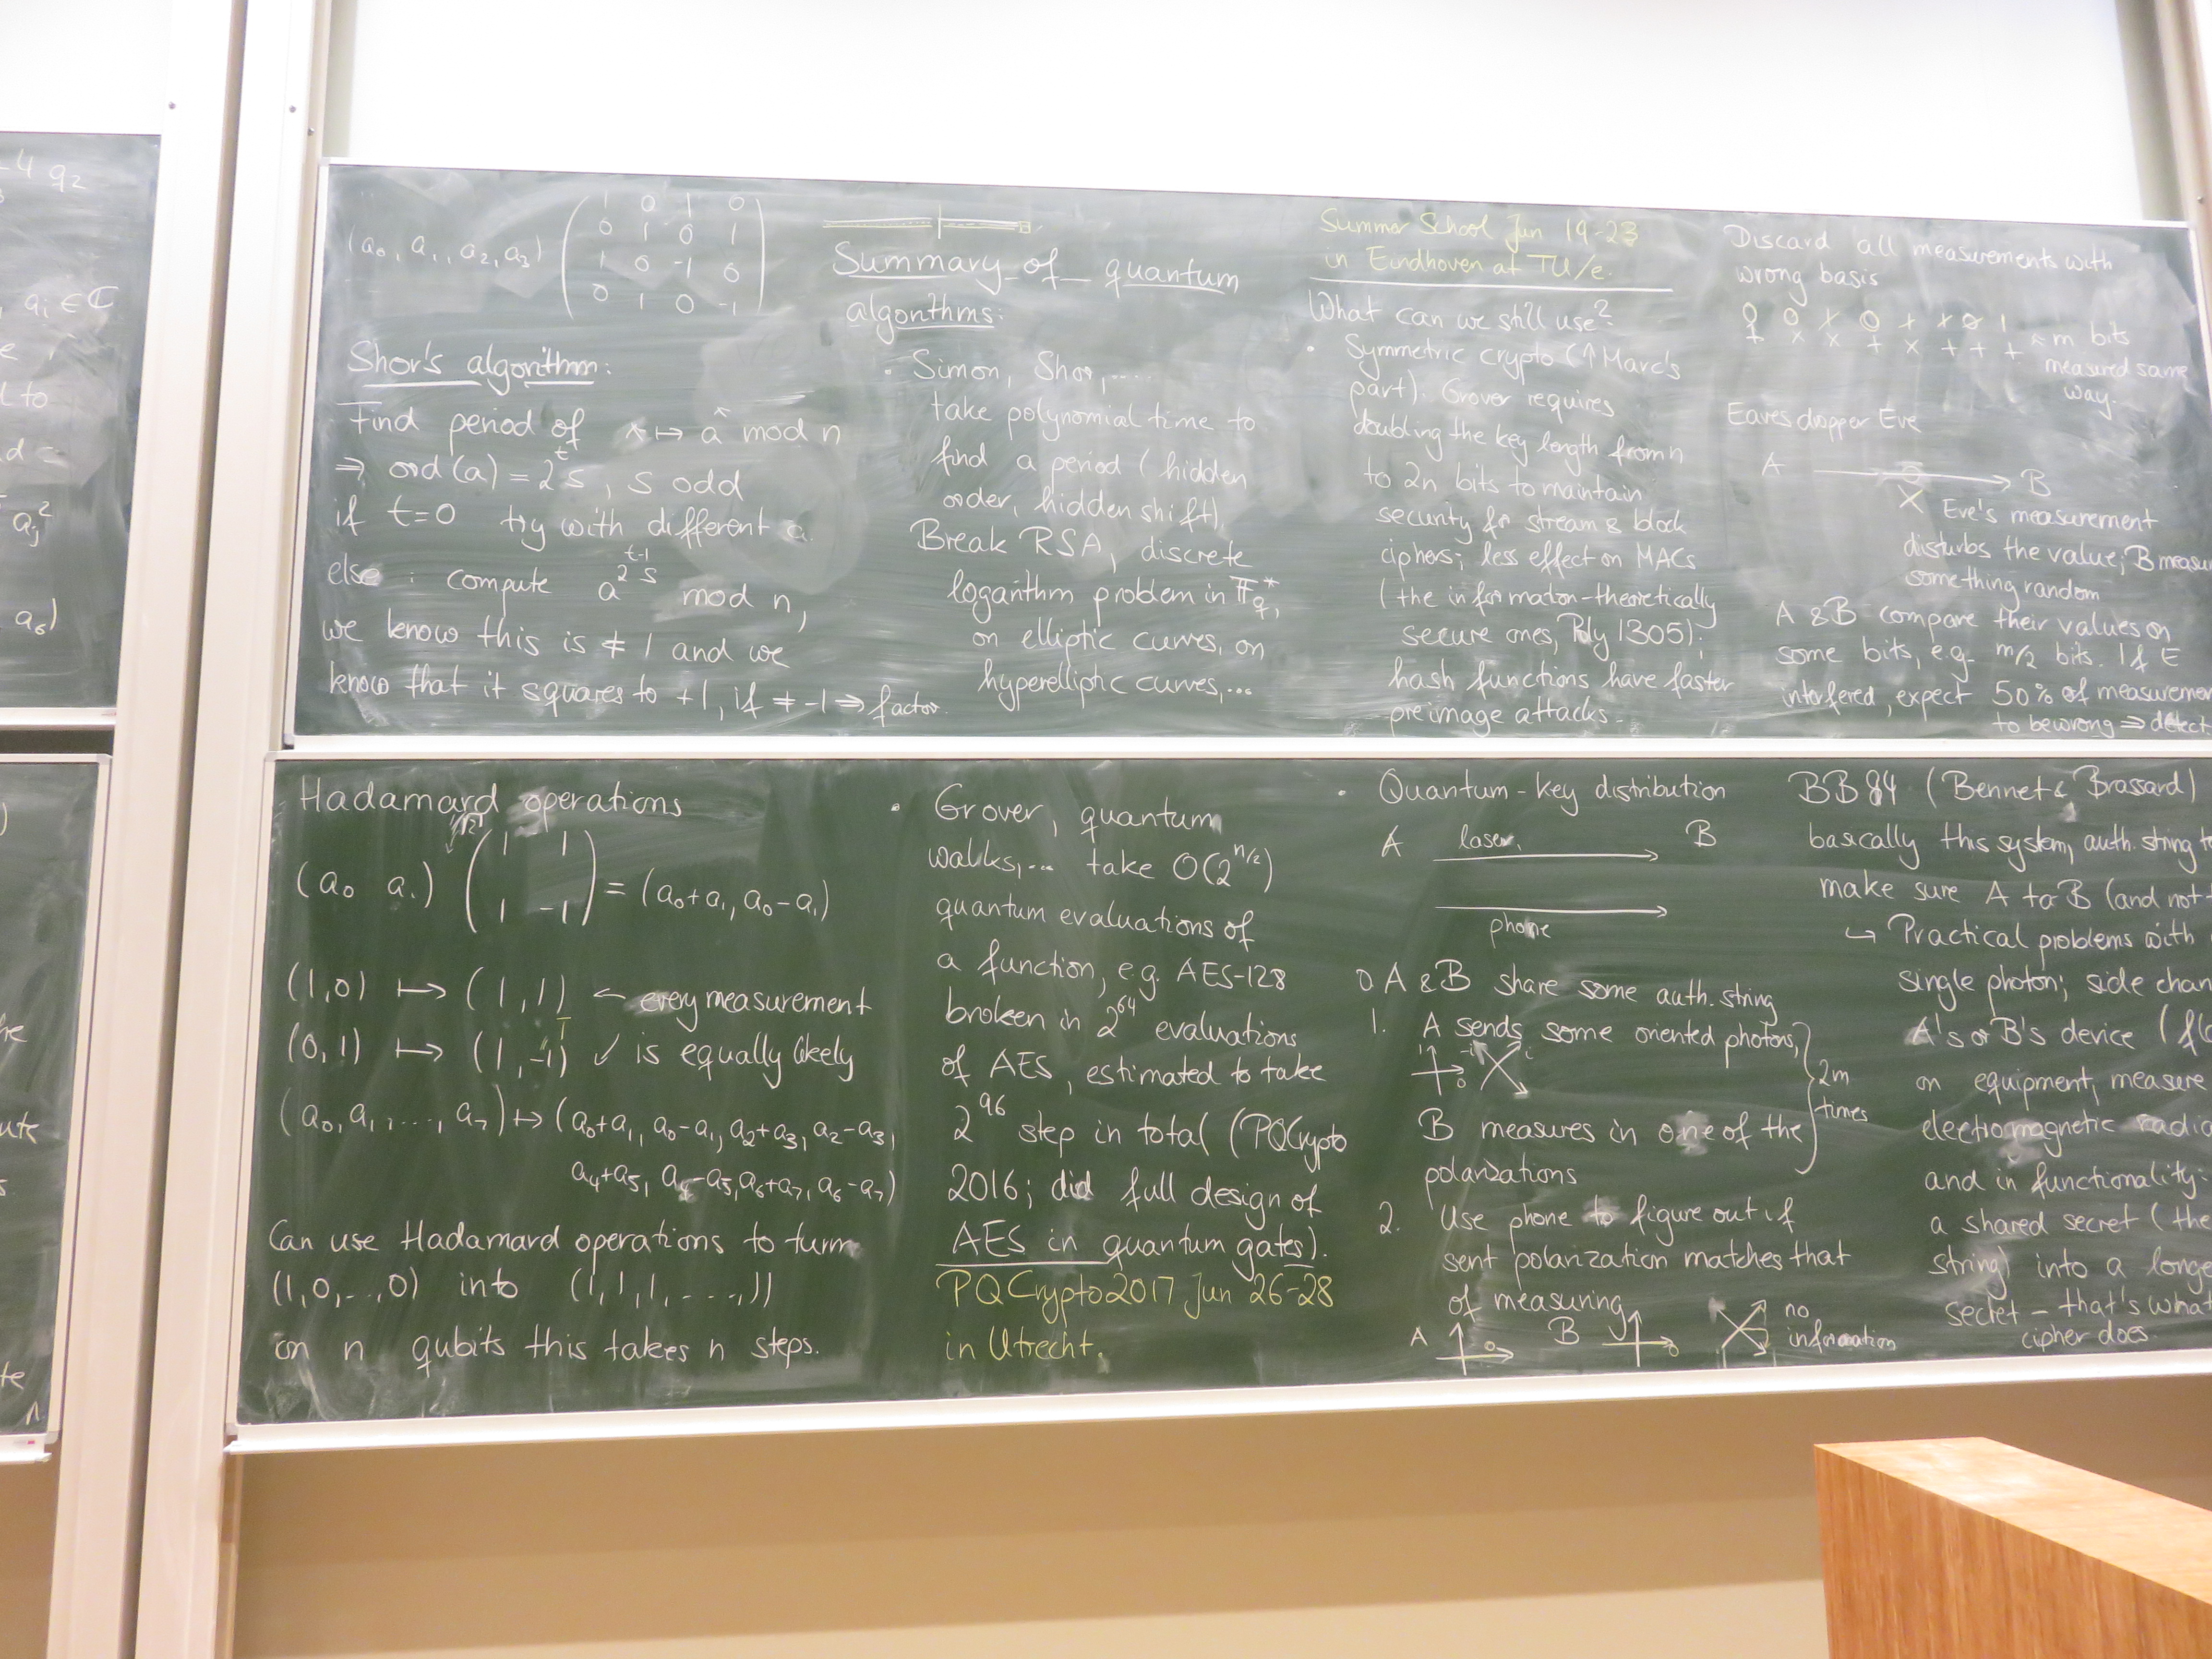 -4 q2
, qi ∈ ℂ
l to
aj²
a6)
(a0, a1, a2, a3) ( 1 0 1 0
0 1 0 1
1 0 -1 0
0 1 0 -1 )
Shor's algorithm:
Find period of x ↦ a^x mod n
⇒ ord(a) = 2^t s, s odd
if t=0 try with different a
else: compute a^(2^(t-1) s) mod n,
we know this is ≠ 1 and we
know that it squares to +1, if ≠ -1 ⇒ factor.
Hadamard operations
(a0 a1) ( 1 1
1 -1 ) = (a0+a1, a0-a1)
(1,0) ↦ (1,1) ← every measurement
(0,1) ↦ (1,-1) ✓ is equally likely
(a0, a1, ..., a7) ↦ (a0+a1, a0-a1, a2+a3, a2-a3,
a4+a5, a4-a5, a6+a7, a6-a7)
Can use Hadamard operations to turn
(1,0,...,0) into (1,1,1,...,1)
on n qubits this takes n steps.
Summary of quantum
algorithms:
• Simon, Shor, ....
take polynomial time to
find a period (hidden
order, hidden shift).
Break RSA, discrete
logarithm problem in 𝔽q*,
on elliptic curves, on
hyperelliptic curves, ...
• Grover, quantum
walks, ... take O(2^(n/2))
quantum evaluations of
a function, e.g. AES-128
broken in 2^64 evaluations
of AES, estimated to take
2^96 step in total (PQCrypto
2016; did full design of
AES in quantum gates).
PQCrypto2017 Jun 26-28
in Utrecht.
Summer School Jun 19-23
in Eindhoven at TU/e.
What can we still use?
• Symmetric crypto (↑ Marc's
part). Grover requires
doubling the key length from n
to 2n bits to maintain
security for stream & block
ciphers; less effect on MACs
(the informaton-theoretically
secure ones, Poly 1305);
hash functions have faster
preimage attacks.
• Quantum-key distribution
A laser B
phone
0. A & B share some auth. string
1. A sends some oriented photons,
1 0
B measures in one of the
polarizations
2m
times
2. Use phone to figure out if
sent polarization matches that
of measuring
A B no
information
Discard all measurements with
wrong basis
← m bits
measured same
way.
Eavesdropper Eve
A B
Eve's measurement
disturbs the value; B measu
something random
A & B compare their values on
some bits, e.g. m/2 bits. If E
interfered, expect 50% of measureme
to be wrong ⇒ detect.
BB84 (Bennet & Brassard)
basically this system, auth. string to
make sure A to B (and not
↳ Practical problems with
single photon; side chan
A's or B's device (fl
on equipment, measure
electromagnetic radia
and in functionality:
a shared secret (the
string) into a longe
secret – that's what
cipher does.